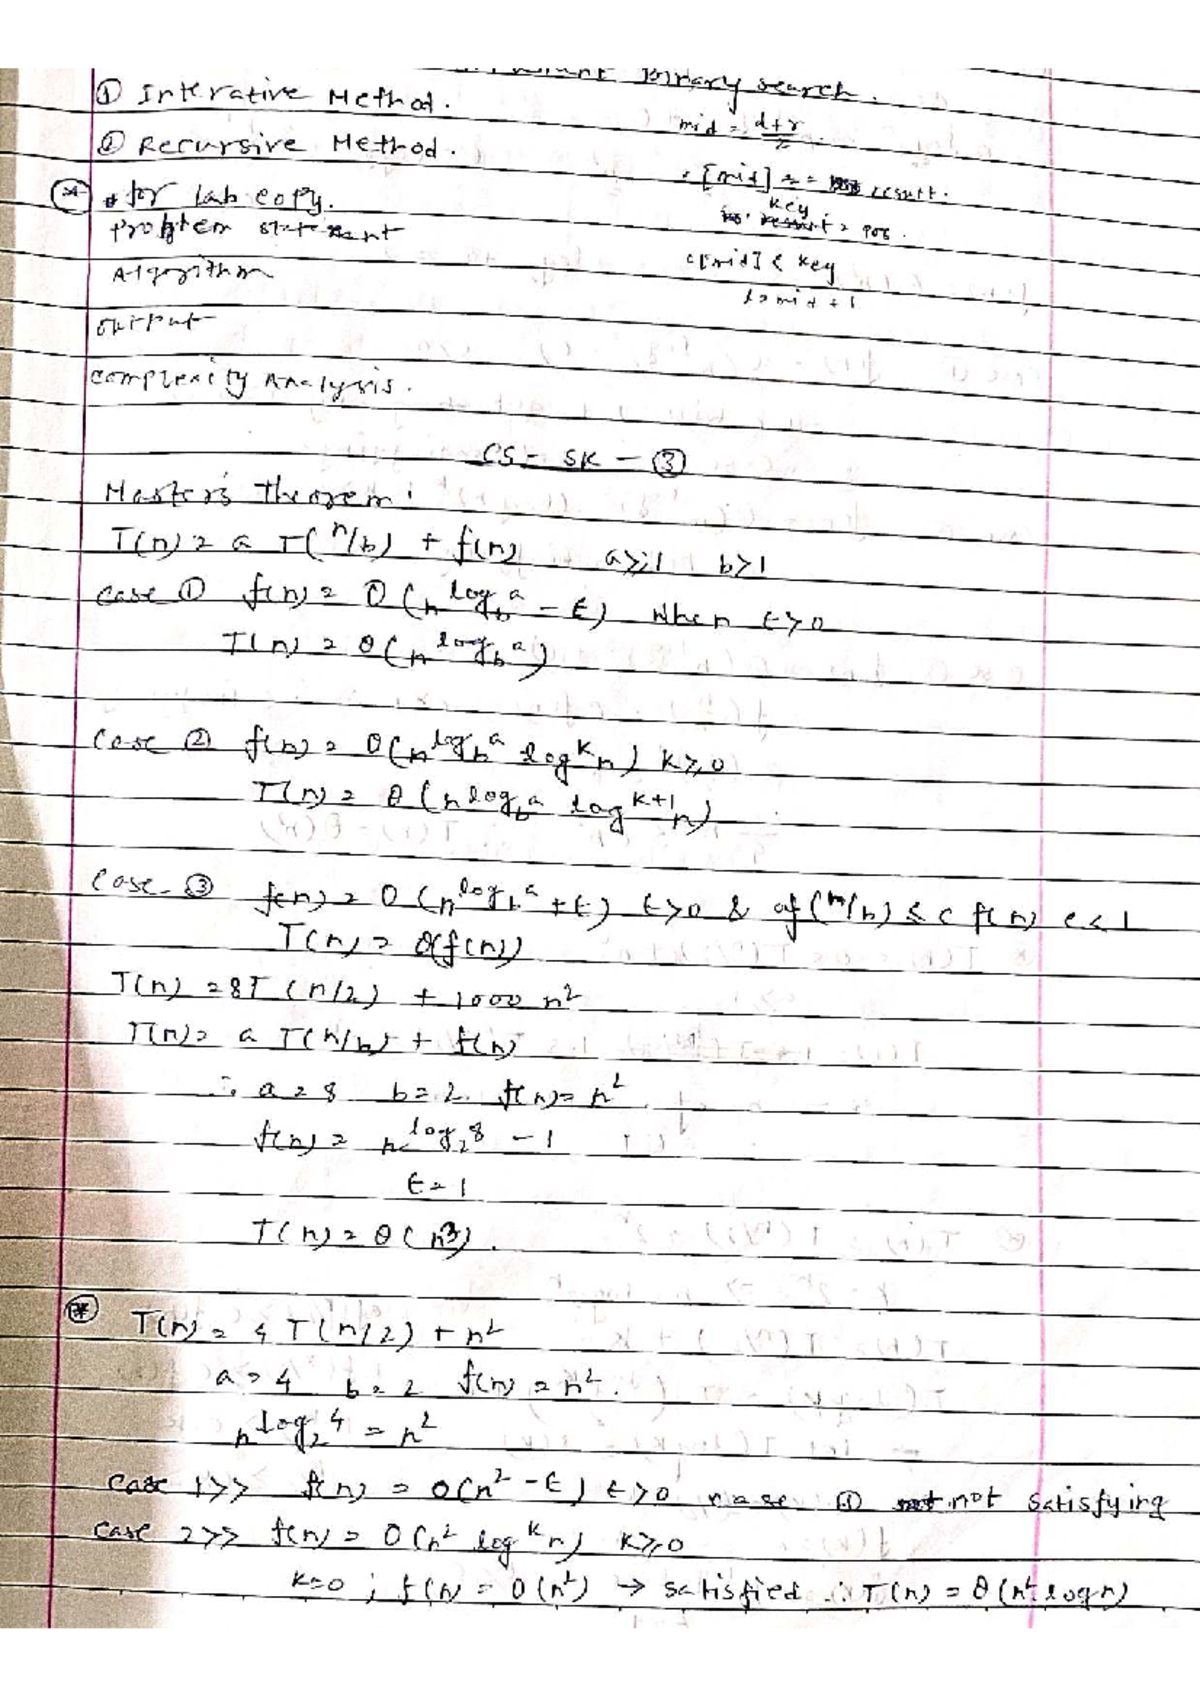 Binary search.
① Interative Method.
mid = l+r/2
② Recursive Method.
[mid] == result.
key
* for lab copy.
result = pos.
problem statement
c[mid] < key
Algorithm
l = mid + 1
output
complexity Analysis.
CS - SK - ③
Master's Theorem:
T(n) = a T(n/b) + f(n) a≥1 b>1
case ① f(n) = O(n^log_b a - ε) when ε>0
T(n) = θ(n^log_b a)
case ② f(n) = θ(n^log_b a log^k n) k≥0
T(n) = θ(n^log_b a log^k+1 n)
case-③ f(n) = O(n^log_b a + ε) ε>0 & af(n/b) ≤ c f(n) c<1
T(n) = θ(f(n))
T(n) = 8T(n/2) + 1000 n²
T(n) = a T(n/b) + f(n)
∴ a = 8 b = 2. f(n) = n²
f(n) = n^log_2 8 - 1
ε = 1
T(n) = θ(n³).
* T(n) = 4 T(n/2) + n²
a = 4 b = 2 f(n) = n².
n^log_2 4 = n²
case 1>> f(n) = O(n² - ε) ε>0 case ① not satisfying
case 2>> f(n) = O(n² log^k n) k≥0
k=0 ; f(n) = O(n²) → satisfied ∴ T(n) = θ(n² log n)